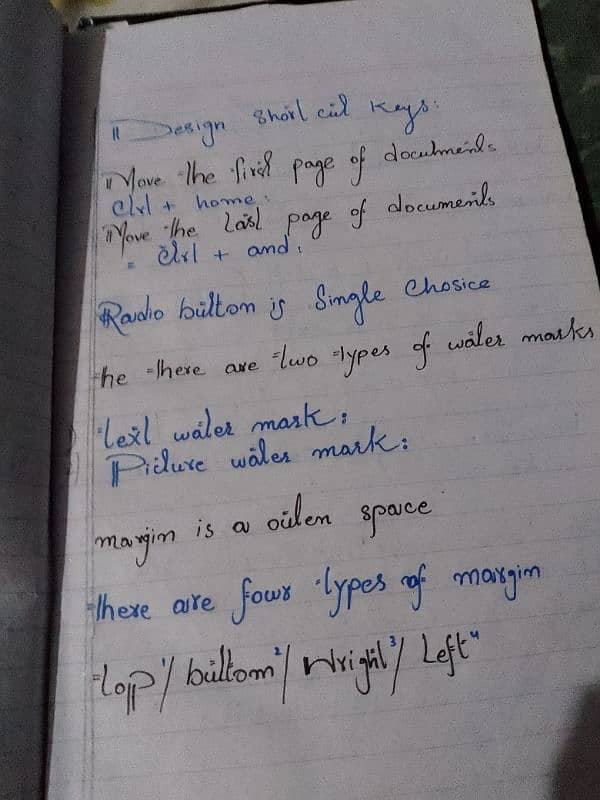 Design Short cut Keys:
Move the first page of documents
Ctrl + home:
Move the Last page of documents
= Ctrl + and:
Radio buttom is Single Chosice
the there are two types of water marks
text water mark:
Picture water mark:
margin is a outen space
there are four types of margin
topp 1/ buttom 2/ Wright 3/ Left 4